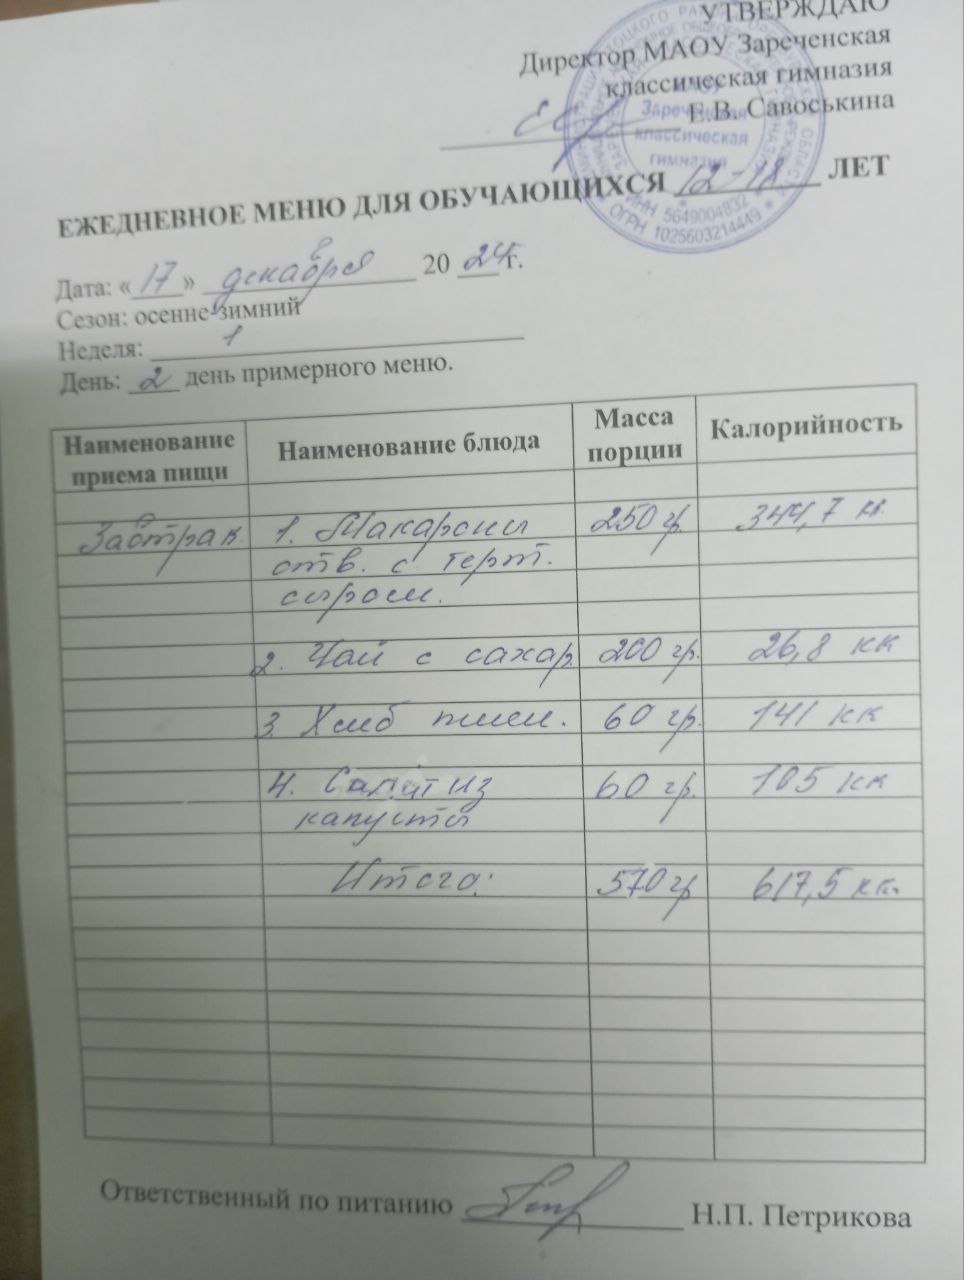 УТВЕРЖДАЮ
Директор МАОУ Зареченская
классическая гимназия
Е.В. Савоськина
МАОУ
Зареченская
классическая
гимназия
ИНН 5649004832
ОГРН 1025603214449
ЕЖЕДНЕВНОЕ МЕНЮ ДЛЯ ОБУЧАЮЩИХСЯ 12-18 ЛЕТ
Дата: «17» декабря 20 24 г.
Сезон: осенне-зимний
Неделя: 1
День: 2 день примерного меню.
Наименование приема пищи Наименование блюда Масса порции Калорийность
Завтрак 1. Макароны 250 гр. 344,7 кк
отв. с терт.
сыром.
2. Чай с сахар. 200 гр. 26,8 кк
3. Хлеб пшен. 60 гр. 141 кк
4. Салат из 60 гр. 105 кк
капусты
Итого: 570 гр 617,5 кк.
Ответственный по питанию Н.П. Петрикова